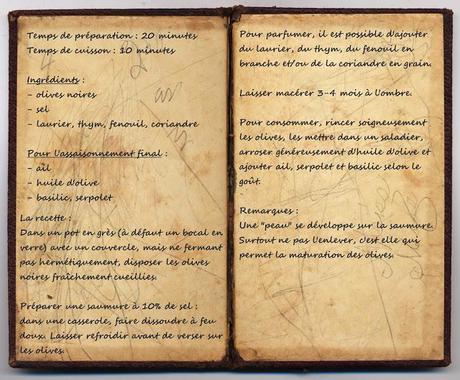 Temps de préparation : 20 minutes
Temps de cuisson : 10 minutes
Ingrédients :
- olives noires
- sel
- laurier, thym, fenouil, coriandre
Pour l'assaisonnement final :
- ail
- huile d'olive
- basilic, serpolet
La recette :
Dans un pot en grès (à défaut un bocal en
verre) avec un couvercle, mais ne fermant
pas hermétiquement, disposer les olives
noires fraîchement cueillies.
Préparer une saumure à 10% de sel :
dans une casserole, faire dissoudre à feu
doux. Laisser refroidir avant de verser sur
les olives.
Pour parfumer, il est possible d'ajouter
du laurier, du thym, du fenouil en
branche et/ou de la coriandre en grain.
Laisser macérer 3-4 mois à l'ombre.
Pour consommer, rincer soigneusement
les olives, les mettre dans un saladier,
arroser généreusement d'huile d'olive et
ajouter ail, serpolet et basilic selon le
goût.
Remarques :
Une "peau" se développe sur la saumure.
Surtout ne pas l'enlever, c'est elle qui
permet la maturation des olives.